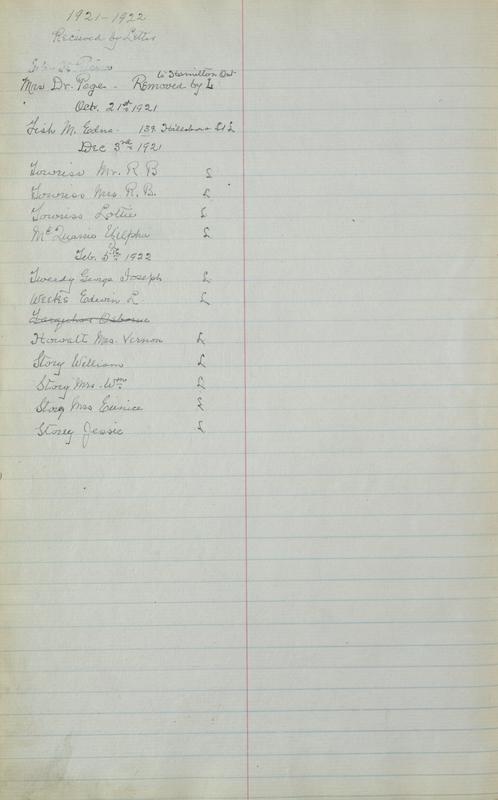 1921-1922
Recieved by Letter
to Hamilton Ont.
Mrs Dr. Page. Removed by L
Oct. 21st 1921
Fish M. Edna. 139 Hillsboro St L
Dec 3rd 1921
Towriss Mr. R B L
Towriss Mrs. R. B. L
Towriss Lottie L
McQuarrie L
Feb. 5th 1922
Tweedy George Joseph L
Weeks Edwin L. L
Farquhar Osborne
Howatt Mrs. Vernon L
Story William L
Story Mrs. Wm L
Story Mrs Eunice L
Storey Jessie L